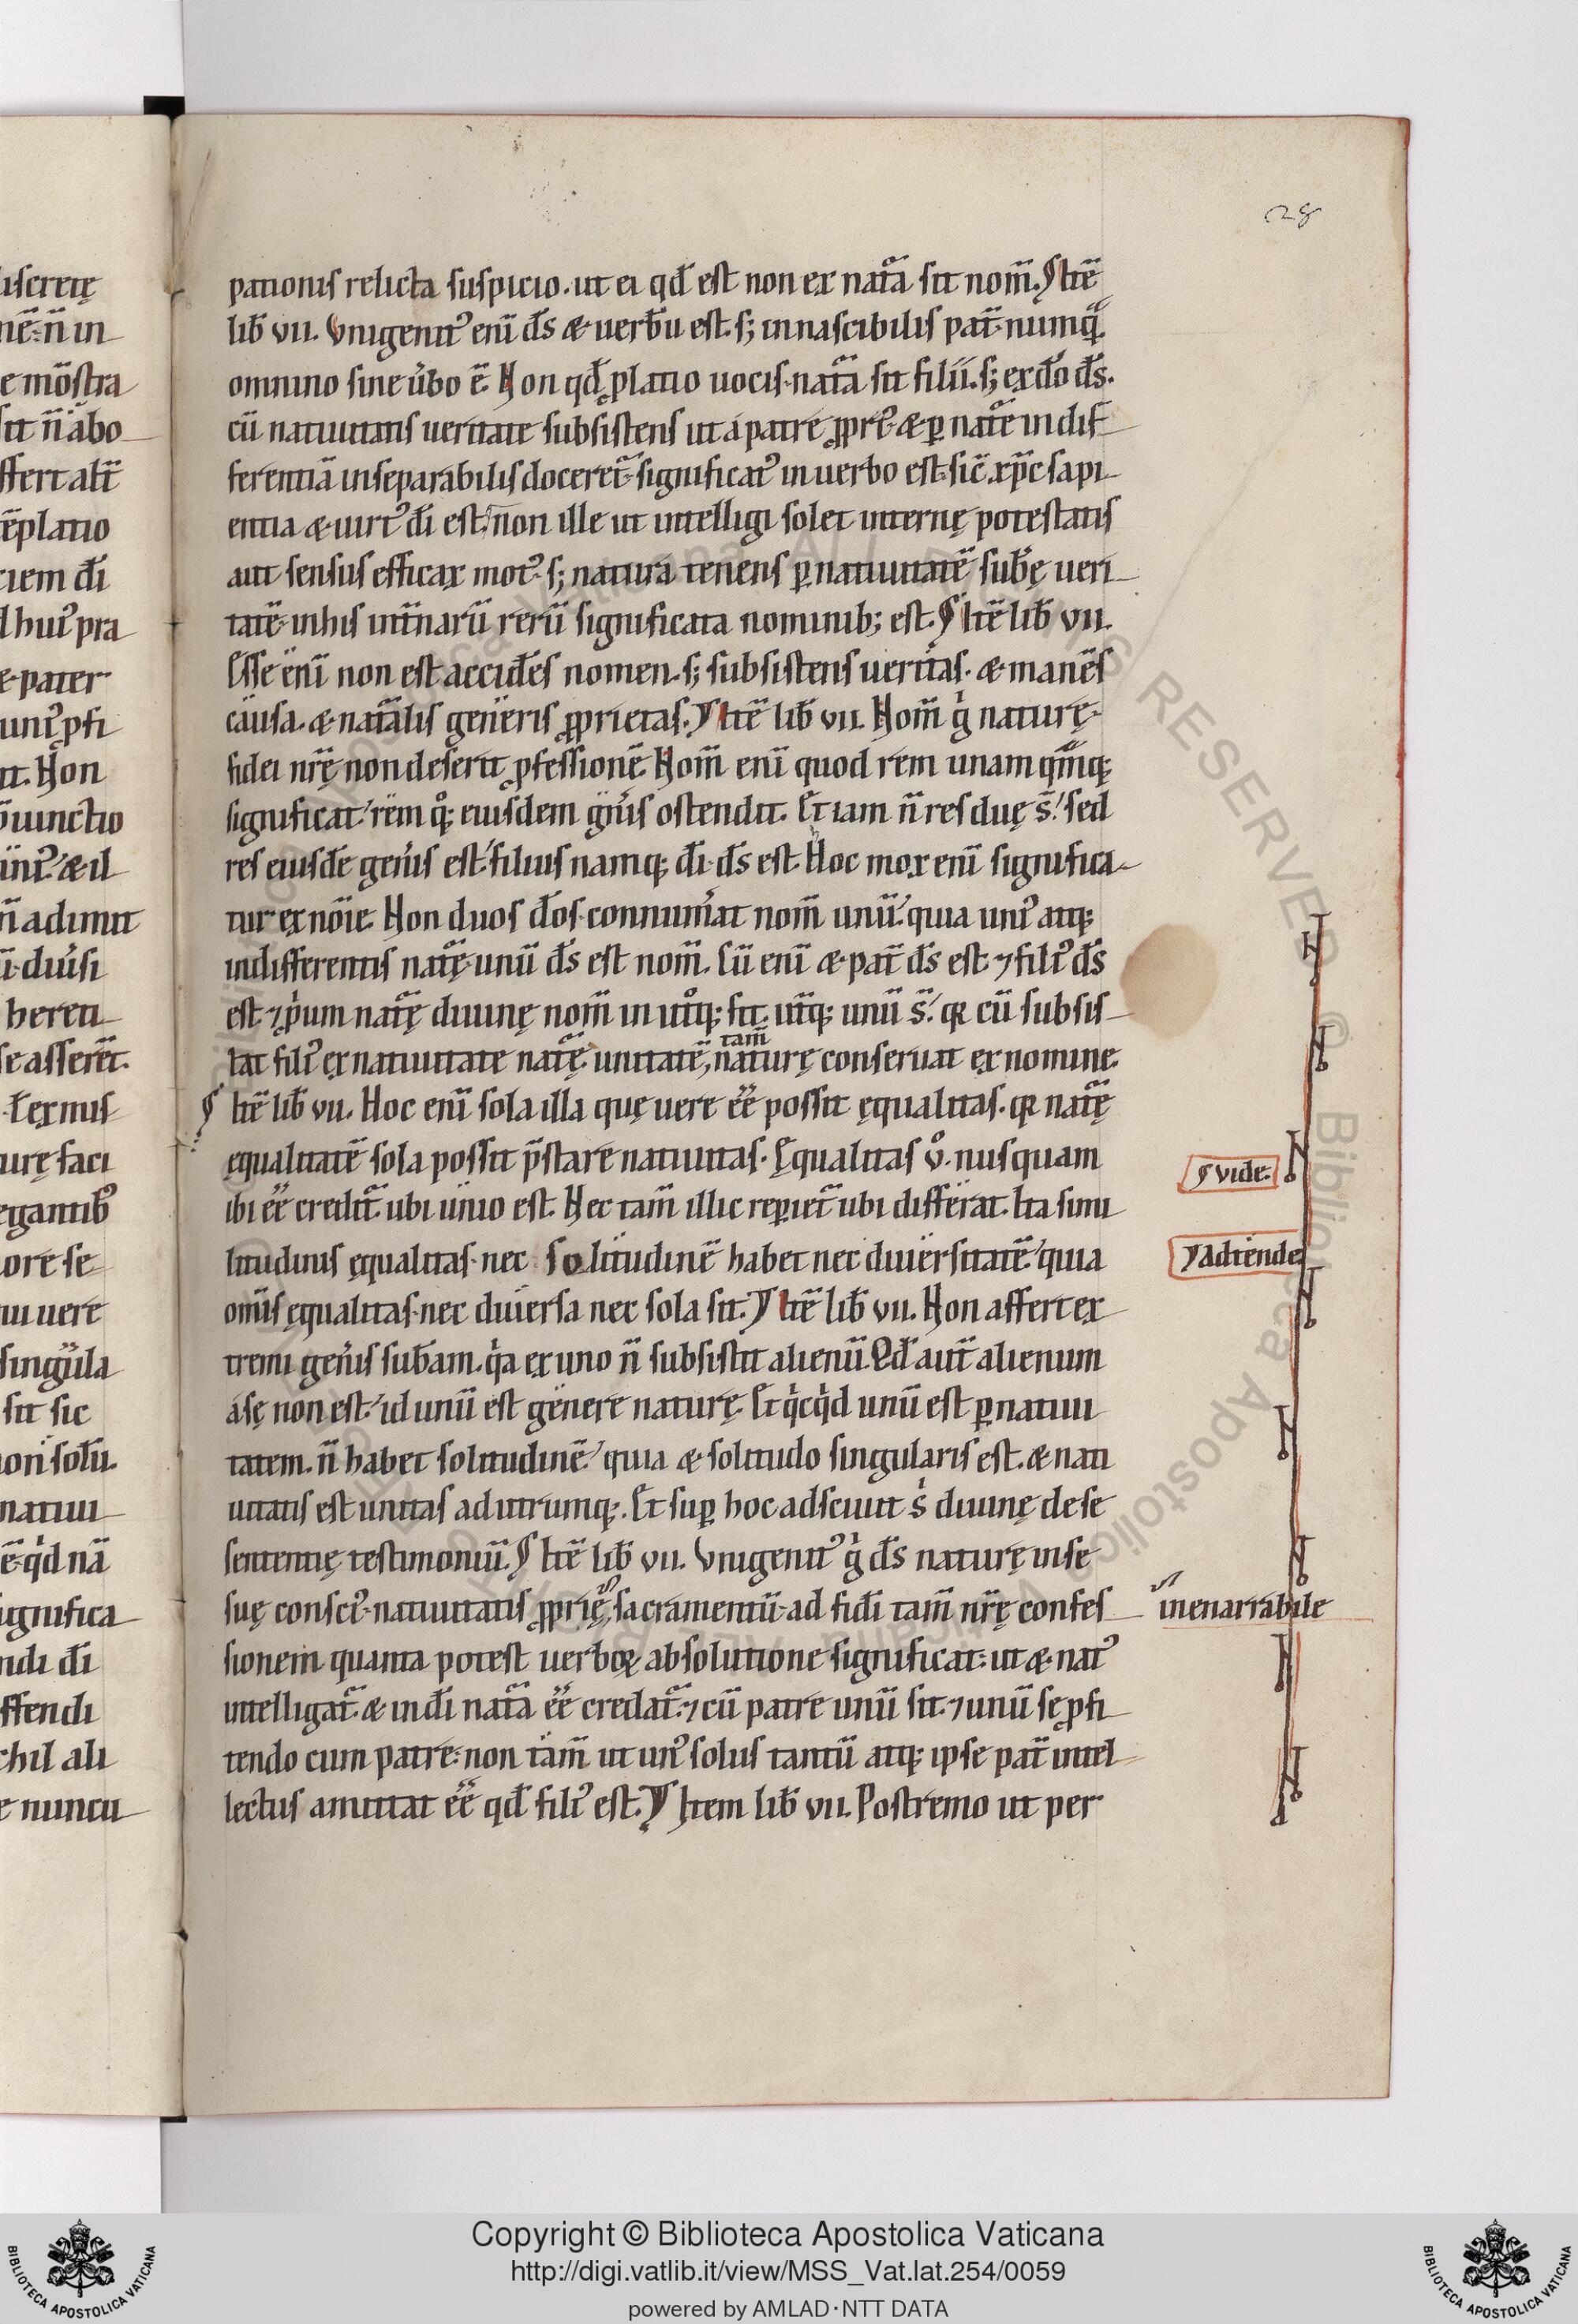 28
pationis relicta suspicio. ut ei qđ est non ex natᷓa sit nom̄. ¶ Itē
lib̄ vii. Vnigenit᾽ enī d̄s & uerbū est. s; innascibilis pat̄ numq̄ᷓ.
omnino sine ůbo ē. Non qđ ꝓlatio uocis natᷓa sit filii. s; ex d̄o d̄s.
cū natiuitatis ueritate subsistens ut a patre ꝓpr᾽ & ꝑ natᷓe indif
ferentiā inseparabilis doceret᷑ significat᾽ in uerbo est. sic̄ xp̄c sapi
entia & uirt᾽ d̄i est. non ille ut intelligi solet internę potestatis
aut sensus efficax mot᾽. s; natura tenens ꝑ natiuitatē sub̄ę ueri
tatē in his int̄narū rerū significata nominib; est. ¶ Itē lib̄ vii.
Esse enī non est accidēs nomen. s; subsistens ueritas. & manēs
causa. & natᷓalis generis ꝓprietas. ¶ Itē lib̄ vii. Nom̄ gͥ naturę
fidei nr̄ę non deserit ꝓfessionē. Nom̄ enī quod rem unam q̄mq;
significat. rem qͦq; eiusdem gn̄is ostendit. Et iam n̄ res duę s̄. sed
res eiusdē geńis est. filius namq; d̄i d̄s est. Hoc mox enī significa
tur ex nōie. Non duos d̄os connuḿat nom̄ unū. quia uni᾽ atq;
indifferentis natᷓę unū d̄s est nom̄. Cū enī & pat̄ d̄s est ⁊ fili᾽ d̄s
est ⁊ pͥum natᷓę diuinę nom̄ in utͦq; sit. ut̄q; unū s̄. qꝛ cū subsis
tat fili᾽ ex natiuitate natᷓę. unitatē, naturę conseruat ex nomine.
tam̄
¶ Itē lib̄ vii. Hoc enī sola illa quę uere ēē possit ęqualitas. qꝛ natᷓę
ęqualitatē sola possit p̄stare natiuitas. Ęqualitas ů. nusquam
ibi ēē credit᷑ ubi unio est. Nec tam̄ illic reꝑiet᷑ ubi differat. Ita simi
litudinis ęqualitas. nec solitudinē habet nec diuersitatē. quia
om̄is ęqualitas. nec diuersa nec sola sit. ¶ Itē lib̄ vii. Non affert ex
tremi geńis sub̄am. qͥa ex uno n̄ subsistit alienū. Qđ aut̄ alienum
a se non est. id unū est genere naturę. Et qͥcqͥd unū est ꝑ natiui
tatem. n̄ habet solitudinē. quia & solitudo singularis est. & nati
uitatis est unitas ad utrumq;. Et suꝑ hoc adsciuit s̓ diuinę de se
sententię testimoniū. ¶ Itē lib̄ vii. Vnigenit᾽ gͥ d̄s naturę in se
suę consci᾽. natiuitatis ꝓprię, sacramentū. ad fidi tam̄ nr̄ę confes
sionem quanta potest uerboꝝ absolutione significat. ut & nat᾽
intelligat᷑. & in d̄i natᷓa ēē credat᷑. ⁊ cū patre unū sit. ⁊ unū se ꝓfi
tendo cum patre. non tam̄ ut un᾽ solus tantū atq; ipse pat̄ intel
lectus amittat ēē qđ fili᾽ est. ¶ Item lib̄ vii. Postremo ut per
¶ vide.
¶ adtende
inenarrabile
Copyright © Biblioteca Apostolica Vaticana
http://digi.vatlib.it/view/MSS_Vat.lat.254/0059
powered by AMLAD·NTT DATA
BIBLIOTECA APOSTOLICA VATICANA
BIBLIOTECA APOSTOLICA VATICANA